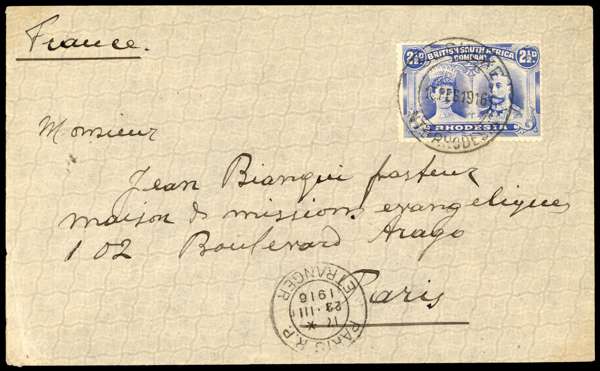 France.
2½D BRITISH SOUTH AFRICA 2½D
COMPANY
FEB 1916
RHODESIA
Monsieur
Jean Bianqui pasteur
maison d missions evangeliques
102 Boulevard Arago
Paris
PARIS R.P. ETRANGER
17 *
23 · III
1916